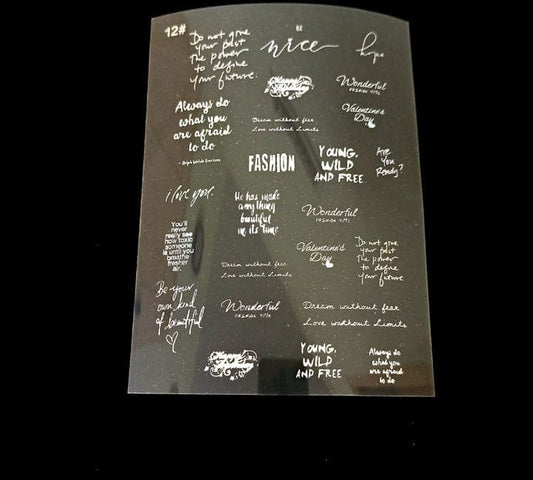 12#
Do not give
your past
the power
to define
your future.
BE
nice
hope
Wonderful
FASHION TIPS
Valentine's
Day
Always do
what you
are afraid
to do
Dream without fear
Love without Limits
FASHION
YOUNG,
WILD
AND FREE
Are
You
Ready?
i love you.
He has made
everything
beautiful
in its time
Wonderful
FASHION TIPS
You'll
never
really see
how toxic
someone
is until
you
breathe
fresher
air.
Valentine's
Day
Do not give
your past
the power
to define
your future
Dream without fear
Love without Limits
Be your
own kind
of beautiful
Wonderful
FASHION TIPS
Dream without fear
Love without Limits
YOUNG,
WILD
AND FREE
Always do
what you
are afraid
to do